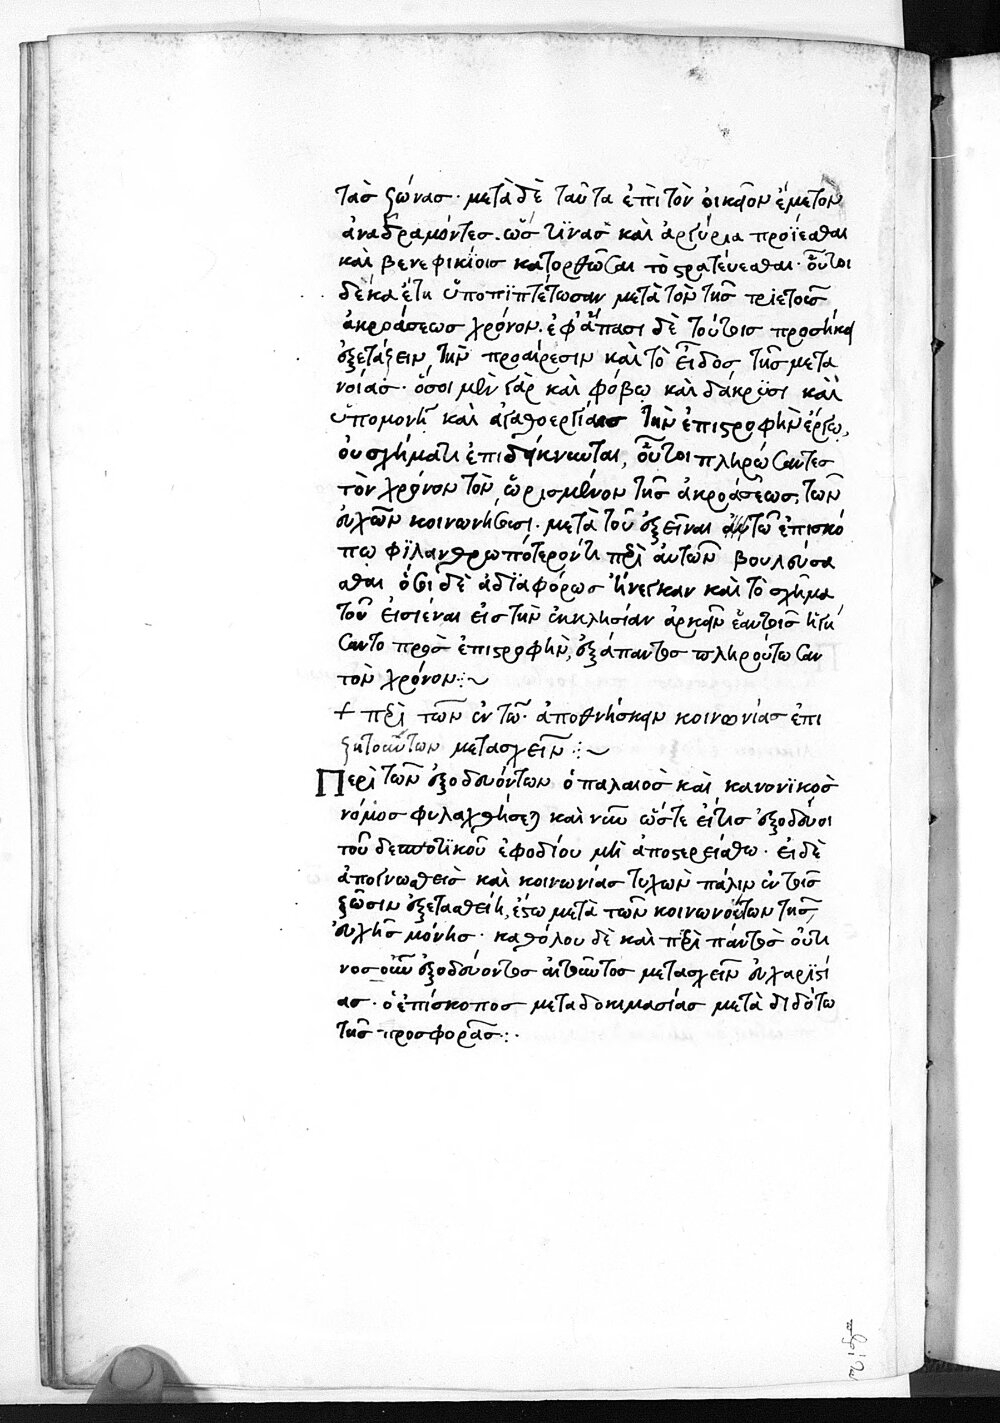 τὰσ ζώνασ · μετὰ δὲ ταῦτα ἐπὶ τὸν οἰκεῖον ἔμετον
ἀναδραμόντεσ . ὥσ τινασ καὶ ἀργύρια προΐεσθαι
καὶ βενεφικίοισ κατορθῶσαι τὸ στρατεύεσθαι · οὗτοι
δέκα ἔτη ὑποπιπτέτωσαν μετὰ τὸν τῆσ τριετοῦσ
ἀκροάσεωσ χρόνον . ἐφ' ἅπασι δὲ τούτοισ προσήκει
ἐξετάζειν τὴν προαίρεσιν καὶ τὸ εἶδοσ τῆσ μετα
νοίασ · ὅσοι μὲν γὰρ καὶ φόβῳ καὶ δάκρυσι καὶ
ὑπομονῆ καὶ ἀγαθοεργίαισ τὴν ἐπιστροφὴν ἔργῳ,
οὐ σχήματι ἐπιδείκνυνται, οὗτοι πληρώσαντεσ
τὸν χρόνον τὸν ὡρισμένον τῆσ ἀκροάσεωσ, τῶν
εὐχῶν κοινωνήσουσι · μετὰ τοῦ ἐξεῖναι τῶ ἐπισκό
πω φιλανθρωπότερόν τι περὶ αὐτῶν βουλεύσα
σθαι ὅσοι δὲ ἀδιαφόρωσ ἤνεγκαν καὶ τὸ σχῆμα
τοῦ εἰσιέναι εἰσ τὴν ἐκκλησίαν ἀρκεῖν ἑαυτοῖσ ἡγή
σαντο πρὸσ ἐπιστροφὴν, ἐξάπαντοσ πληρούτωσαν
τὸν χρόνον :~
+ περὶ τῶν ἐν τῶ ἀποθνήσκειν κοινωνίασ ἐπι
ζητούντων μετασχεῖν :~
Περὶ τῶν ἐξοδευόντων ὁ παλαιὸσ καὶ κανονικὸσ
νόμοσ φυλαχθήσεται καὶ νῦν ὥστε εἴτισ ἐξοδεύοι
τοῦ δεσποτικοῦ ἐφοδίου μὴ ἀποστερείσθω · εἰ δὲ
ἀπογνωσθεὶσ καὶ κοινωνίασ τυχὼν πάλιν ἐν τοῖσ
ζῶσιν ἐξετασθείη, ἔστω μετὰ τῶν κοινωνούντων τῆσ
εὐχῆσ μόνησ · καθόλου δὲ καὶ περὶ παντὸσ οὕτι
νοσ οὖν ἐξοδεύοντοσ αἰτοῦντοσ μετασχεῖν εὐχαριστί
ασ · ὁ ἐπίσκοποσ μετα δοκιμασίασ μετὰ διδότω
τῆσ προσφορᾶσ :·